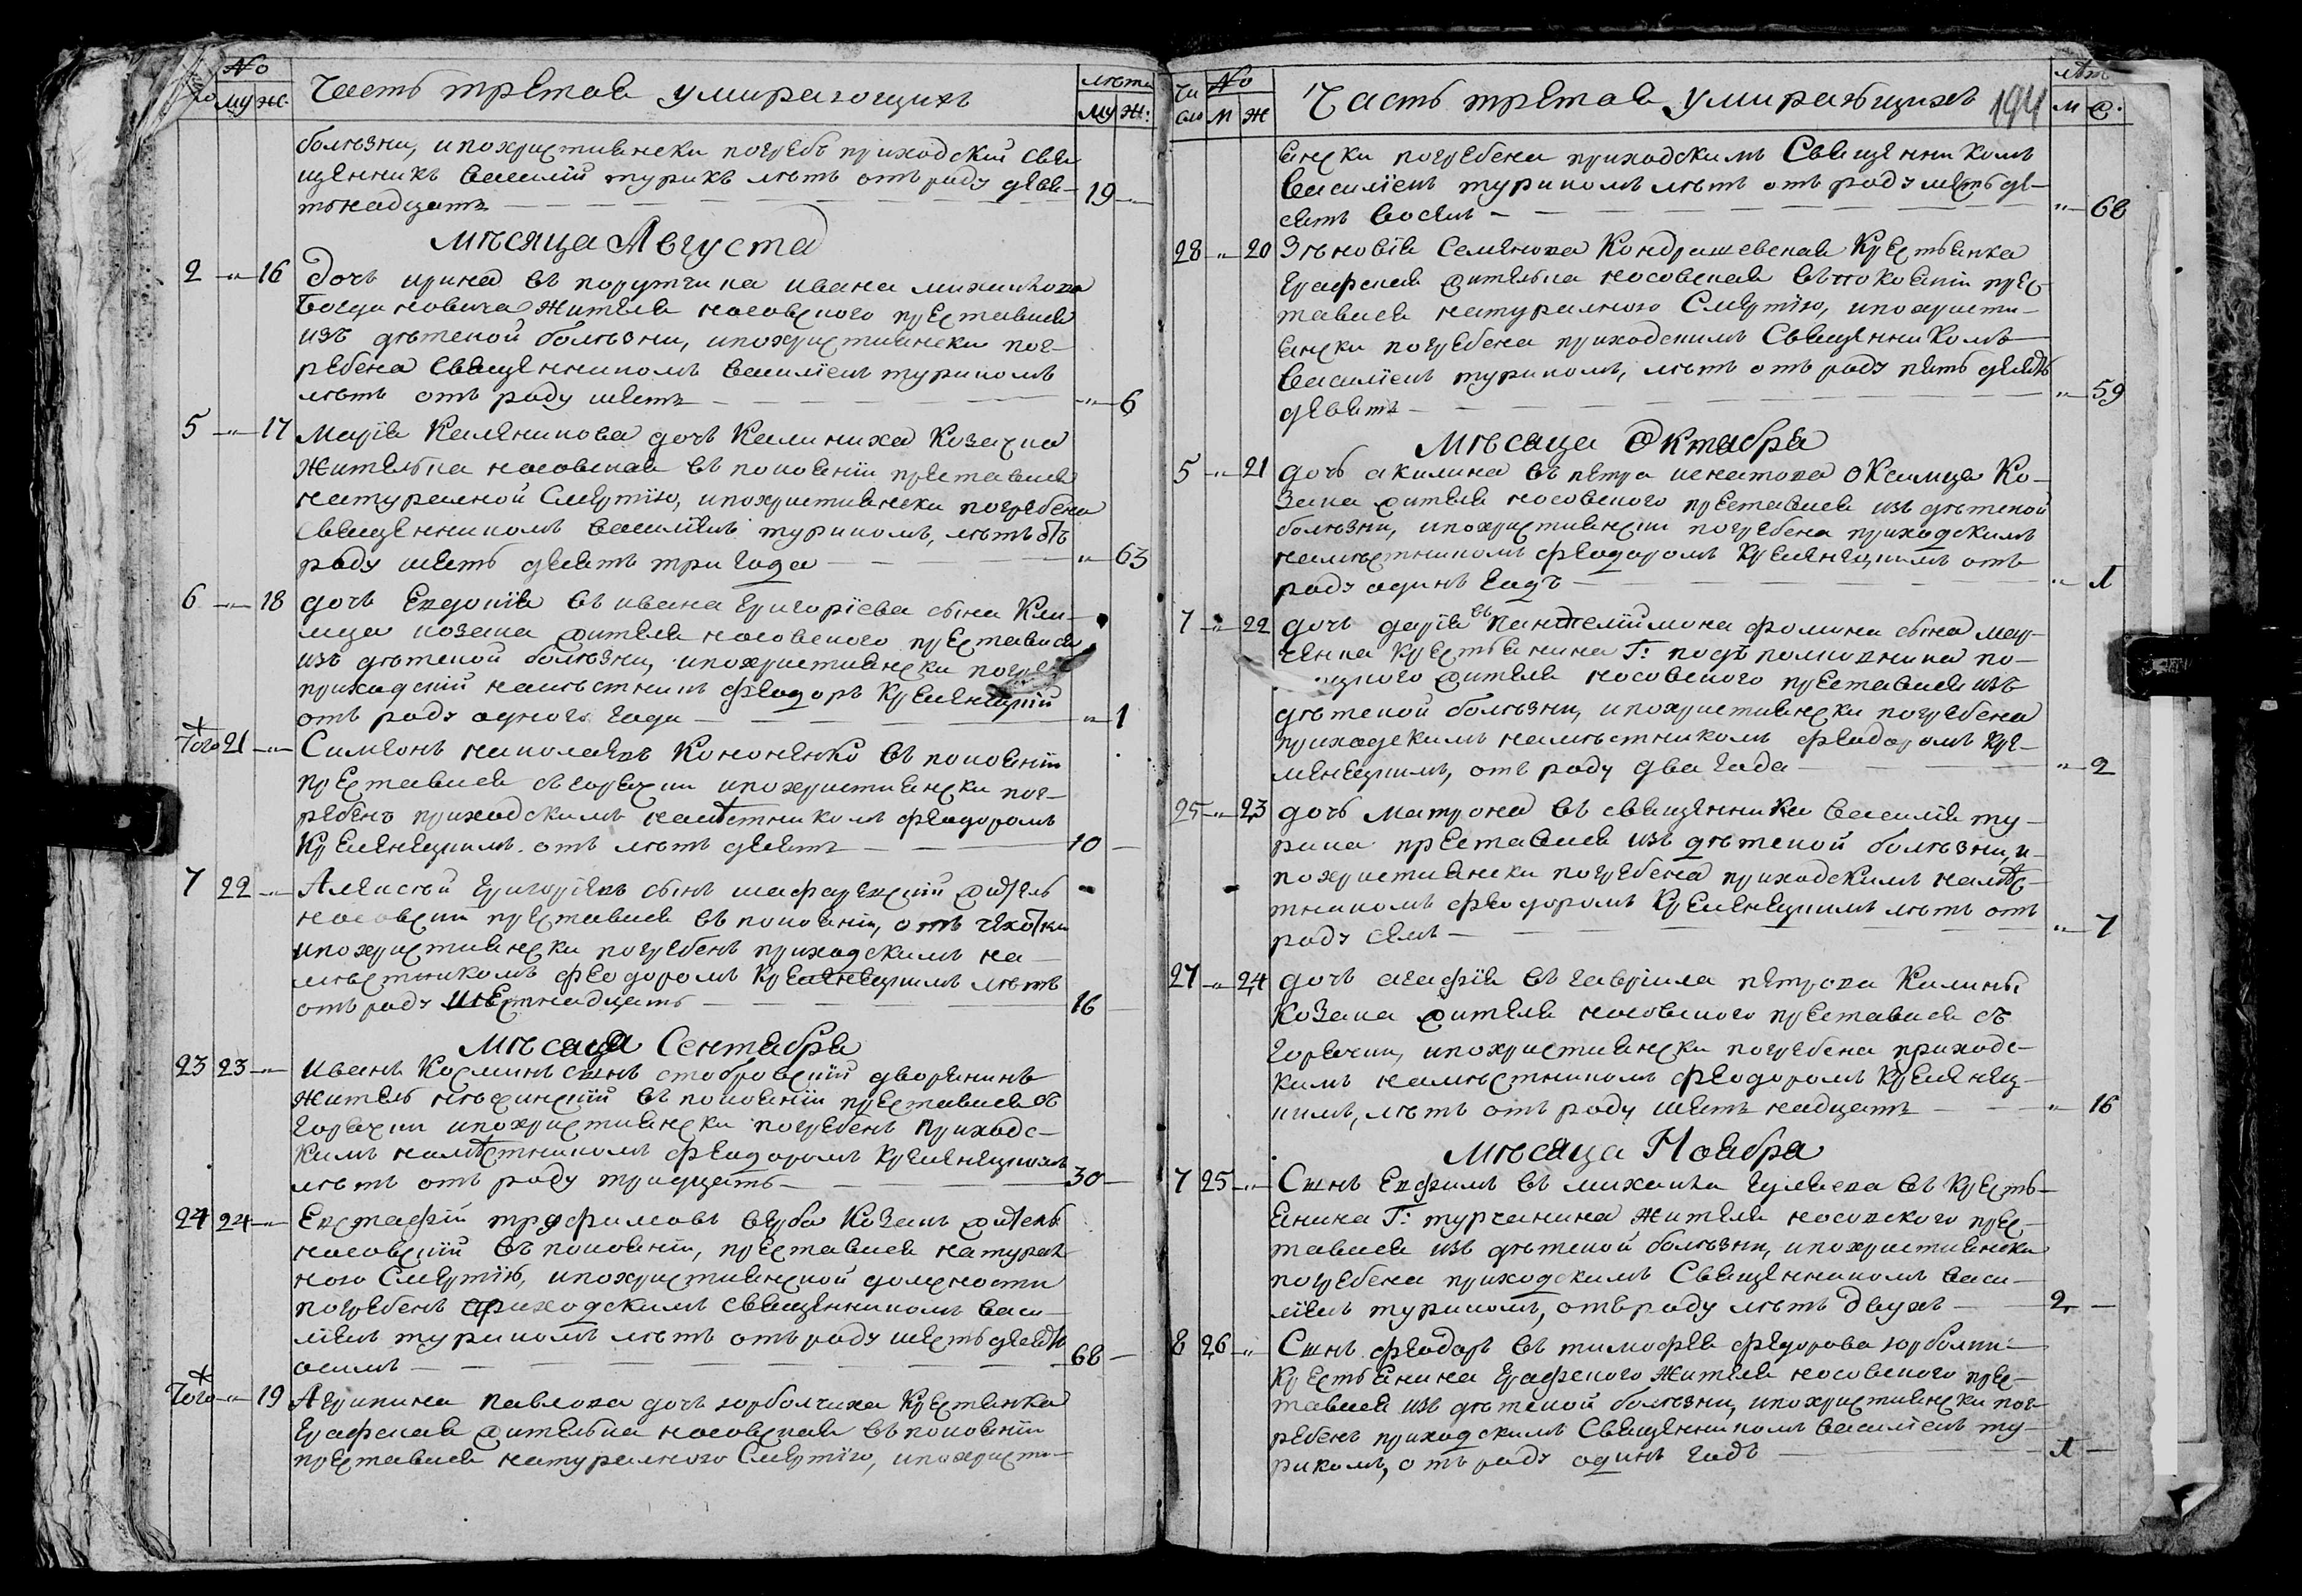 №
му ж:
Часть третая умирающихъ
лѣта
му ж:
болѣзни, ипохристиански погребъ приходский свя
щенникъ василій турикъ лѣтъ отъ роду девя-
тьнадцать — 19 —
Мѣсяца Августа
2 — 16 Дочь ирина въ порутчика ивана михайлова
Богдановича жителя носовского преставися
изъ дѣтской болѣзни, ипохристиански пог-
ребена священникомъ василіемъ турикомъ
лѣтъ отъ роду шесть — 6
5 — 17 Марія Калѣникова дочь Калиниха Козачка
жителька носовская въ покоянїи преставися
натуралной Смертїю, ипохристиански погребена
священникомъ василіемъ турикомъ, лѣтъ отъ
роду шесть десятъ три года — 63
6 — 18 дочь Евдокія въ ивана григорїева сына Кли-
мца козака жителя носовского преставися
изъ дѣтской болѣзни, ипохристиански погребе
приходскій намѣстникъ феодоръ Кременецкій
отъ роду одного года — 1
Того 21 — Симеонъ николаевъ Кононенко въ покоянїи
преставися съгорячки ипохристиански пог-
ребенъ приходскимъ намѣстникомъ феодоромъ
Кременецкимъ отъ лѣтъ десять — 10 —
7 22 — Алексѣй григорїевъ сынъ шафаревскій житель
носовскїи преставися въ покоянїи, отъ чехотки
ипохристиански погребенъ приходскимъ на-
мѣстникомъ феодоромъ Кременецкимъ лѣтъ
отъ роду шестнадцать — 16
Мѣсяца Сентября
23 23 — иванъ Косминъ сынъ стобровскїй дворянинъ
житель нѣжинскїй въ покоянїи преставися съ
горячки ипохристиански погребенъ приходс-
кимъ намѣстникомъ феодоромъ Кременецкимъ
лѣтъ отъ роду тридцать — 30 —
24 24 — Евстафїй трофимовъ верба Козакъ житель
носовскїй въ покоянїи, преставися натурал
ного Смертїю, ипохристианской должности
погребенъ приходскимъ священникомъ васи-
лїемъ турикомъ лѣтъ отъ роду шесть десятъ
осимъ — 68 —
Того — 19 Агрипина павлова дочь юрболчиха Крестянка
графская жителька носовская въ покоянїи
преставися натуралного Смертїю, ипохристи-
Чи
сло
№
м ж
Часть третая умирающихъ 194
лѣтъ
м ж.
ански погребена приходскимъ Священникомъ
василїемъ турикомъ лѣтъ отъ роду шесть де-
сятъ восемъ — 68
28 — 20 Зѣновїя Семенова Кондрашевская Крестьянка
графская жителька носовская въ покоянїи прес-
тавися натуралного Смертїю, ипохристи-
ански погребена приходскимъ Священникомъ
василїемъ турикомъ, лѣтъ отъ роду пять десятъ
девять — 59
Мѣсяца Октября
5 — 21 дочь акилина въ петра игнатова Оксимца Ко-
зака жителя носовского преставися изъ дѣтской
болѣзни, ипохристиански погребена приходскимъ
намѣстникомъ феодоромъ Кременецкимъ отъ
роду одинъ годъ — 1
7 — 22 дочь дарїя въ пантелїймона фомина сына мар-
ченка Крестьянина Г: подъ полковника по-
ного жителя носовского преставися изъ
дѣтской болѣзни, ипохристиански погребена
приходскимъ намѣстникомъ феодоромъ Кре-
менецкимъ, отъ роду два года — 2
25 — 23 дочь матрона въ священника василїя ту-
рика преставися изъ дѣтской болѣзни, и-
похристиански погребена приходскимъ намѣс-
тникомъ феодоромъ Кременецкимъ лѣтъ отъ
роду семь — 7
27 — 24 дочь агафїя въ гаврїила петрова Калины
Козака жителя носовского преставися съ
горячки, ипохристиански погребена приходс-
кимъ намѣстникомъ феодоромъ Кременец-
кимъ, лѣтъ отъ роду шесть надцать — 16
Мѣсяца Ноября
7 25 — Сынъ Евфимъ въ михаила гуляева въ Кресть-
янина Г: турчанина жителя носовского прес-
тавися изъ дѣтской болѣзни, ипохристиански
погребена приходскимъ Священникомъ васи-
лїемъ турикомъ, отъ роду лѣтъ двухъ — 2 —
8 26 — Сынъ феодоръ въ тимофея федорова юрболки
Крестьянина графского жителя носовского прес-
тавися изъ дѣтской болѣзни, ипохристиански пог-
ребенъ приходскимъ Священникомъ василїемъ ту-
рикомъ, отъ роду одинъ годъ — 1 —